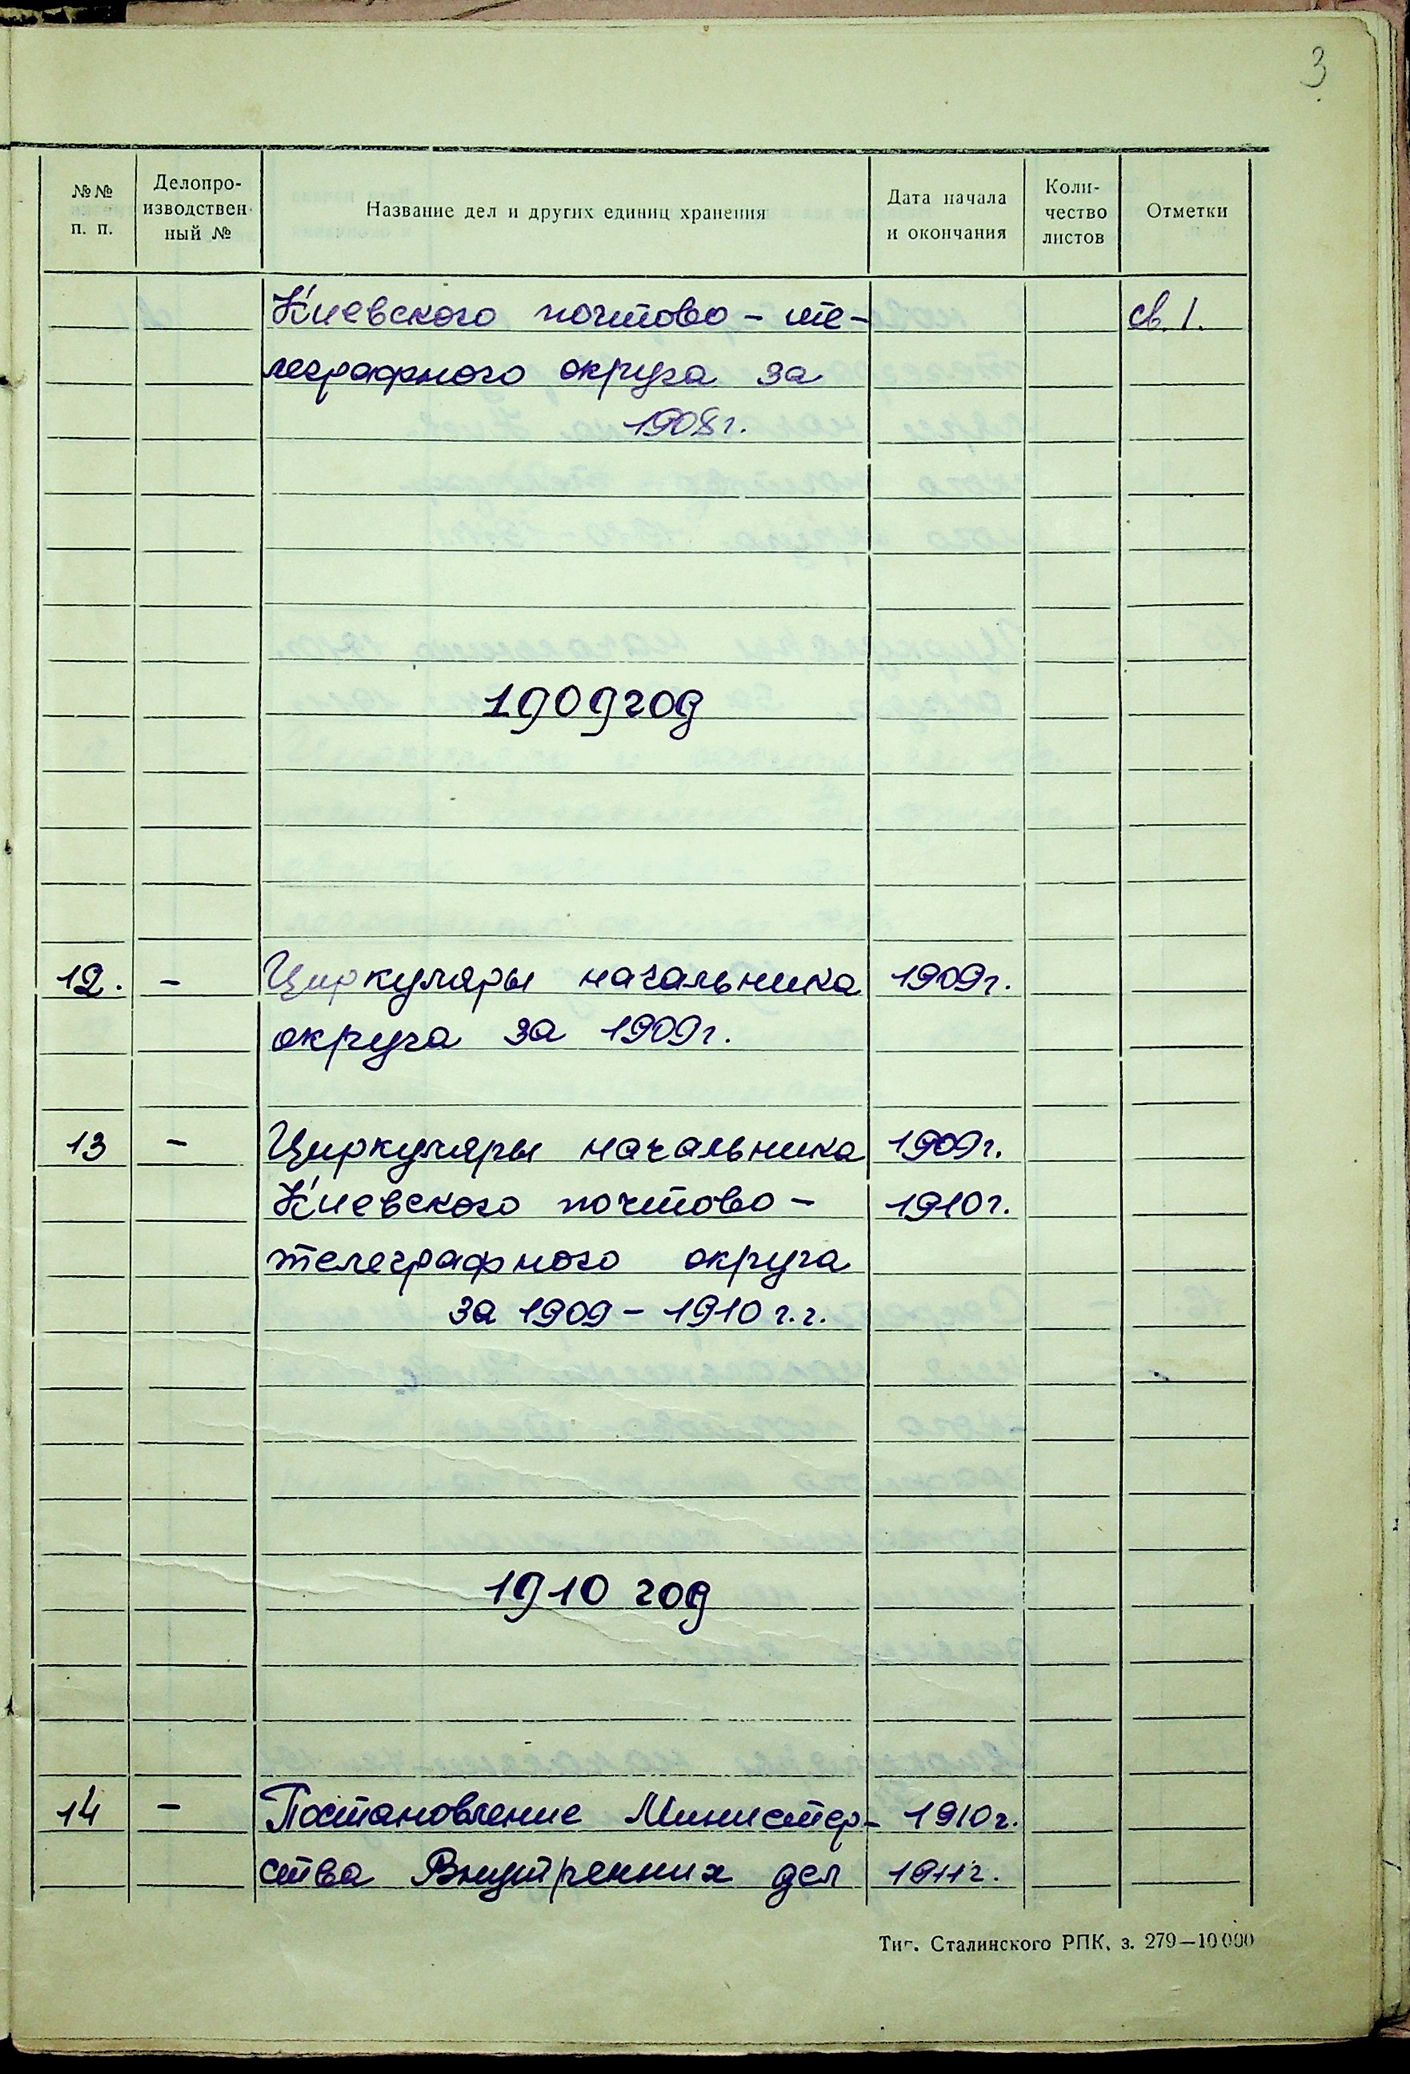 3
№№ п. п.
Делопро-
изводствен-
ный №
Название дел и других единиц хранения
Дата начала
и окончания
Коли-
чество
листов
Отметки
Киевского почтово - те- св. 1.
леграфного округа за
1908 г.
1909 год
12. - Циркуляры начальника 1909 г.
округа за 1909 г.
13 - Циркуляры начальника 1909 г.
Киевского почтово - 1910 г.
телеграфного округа
за 1909 - 1910 г.г.
1910 год
14 - Постановление Министер- 1910 г.
ства Внутренних дел 1911 г.
Тип. Сталинского РПК, з. 279—10000